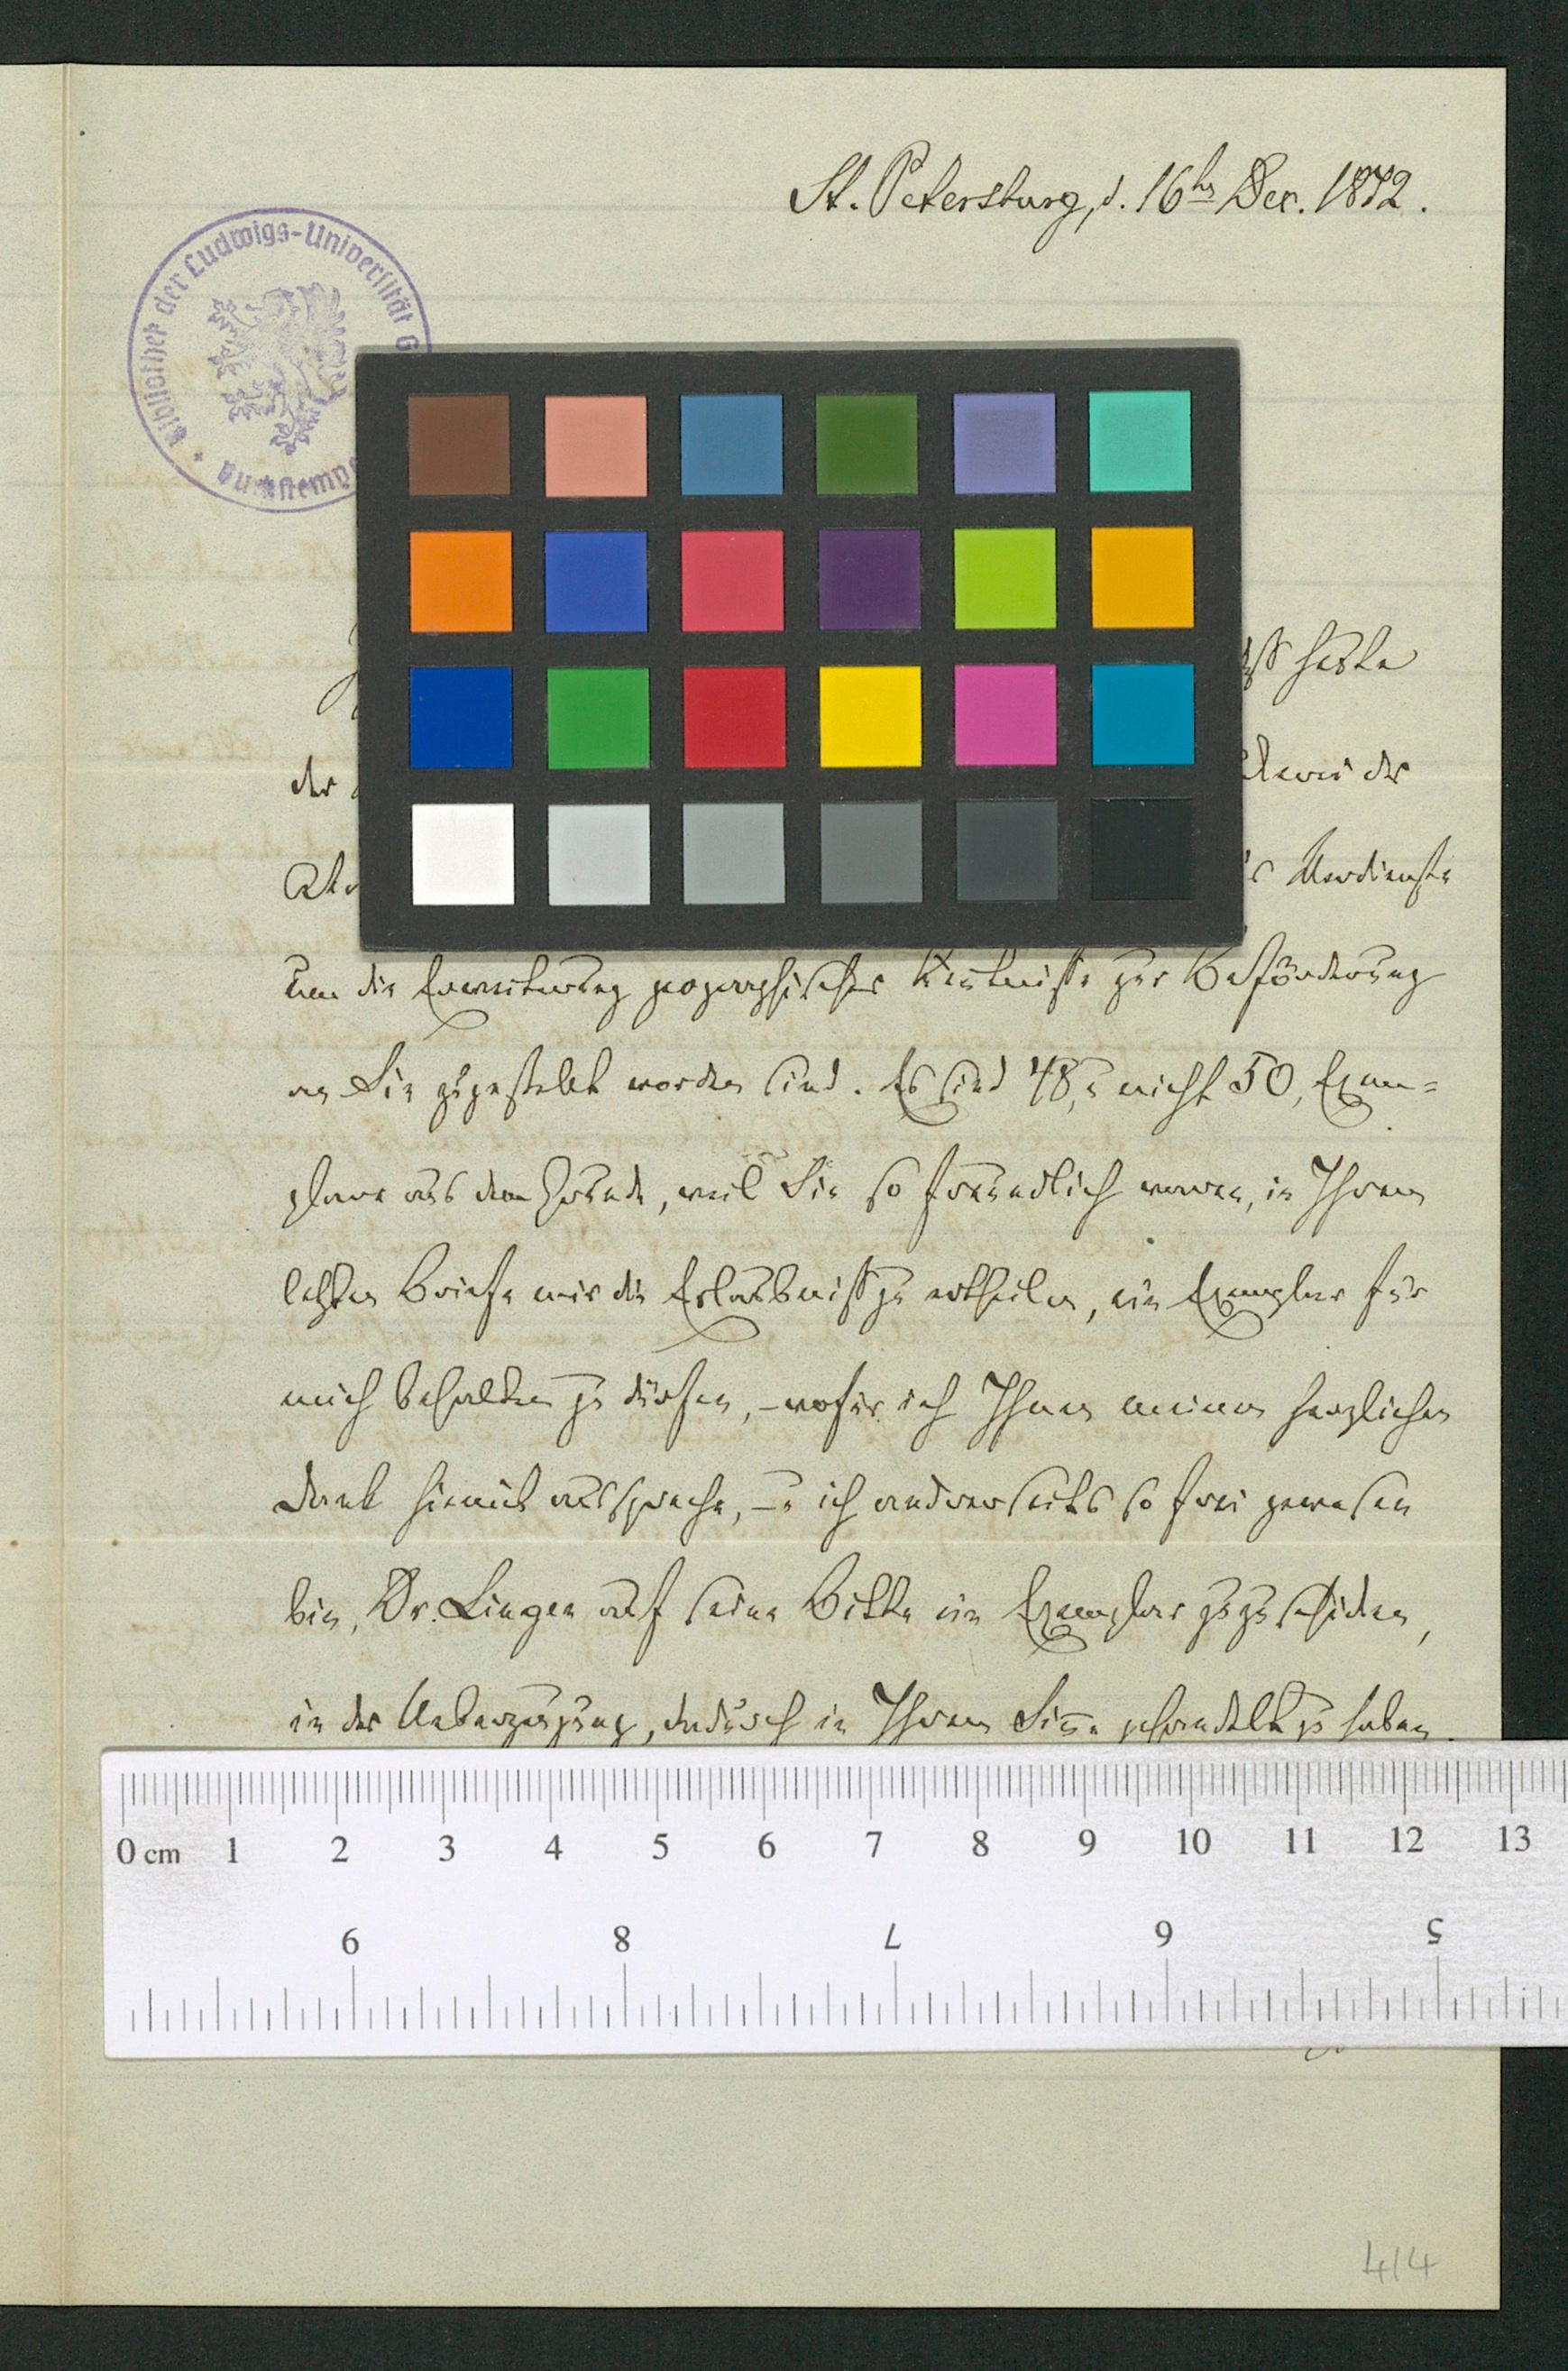 St. Petersburg, d. 16ten Dec. 1872.
Bibliothek der Ludwigs-Universität G
daß heute
der
der
Verdienste
um die Erweiterung geographischer Kentnisse zur Beförderung
an Sie zugestellt worden sind. Es sind 48, u nicht 50, Exem=
plare aus dem Grunde, weil Sie so freundlich waren, in Ihrem
letzten Briefe mir die Erlaubniß zu ertheilen, ein Exemplar für
mich behalten zu dürfen, – wofür ich Ihnen meinen herzlichen
Dank hiemit ausspreche, – u ich andrerseits so frei gewesen
bin, Dr. Lingen auf seine Bitte ein Exemplar zuzuschicken,
in der Ueberzeugung, dadurch in Ihrem Sinne gehandelt zu haben.
0 cm 1 2 3 4 5 6 7 8 9 10 11 12 13
9 8 7 6 5
414